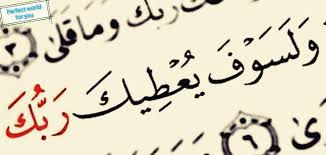 Perfect world
for you
رَبُّكَ وَمَا قَلَىٰ ٣
وَلَسَوْفَ يُعْطِيكَ رَبُّكَ